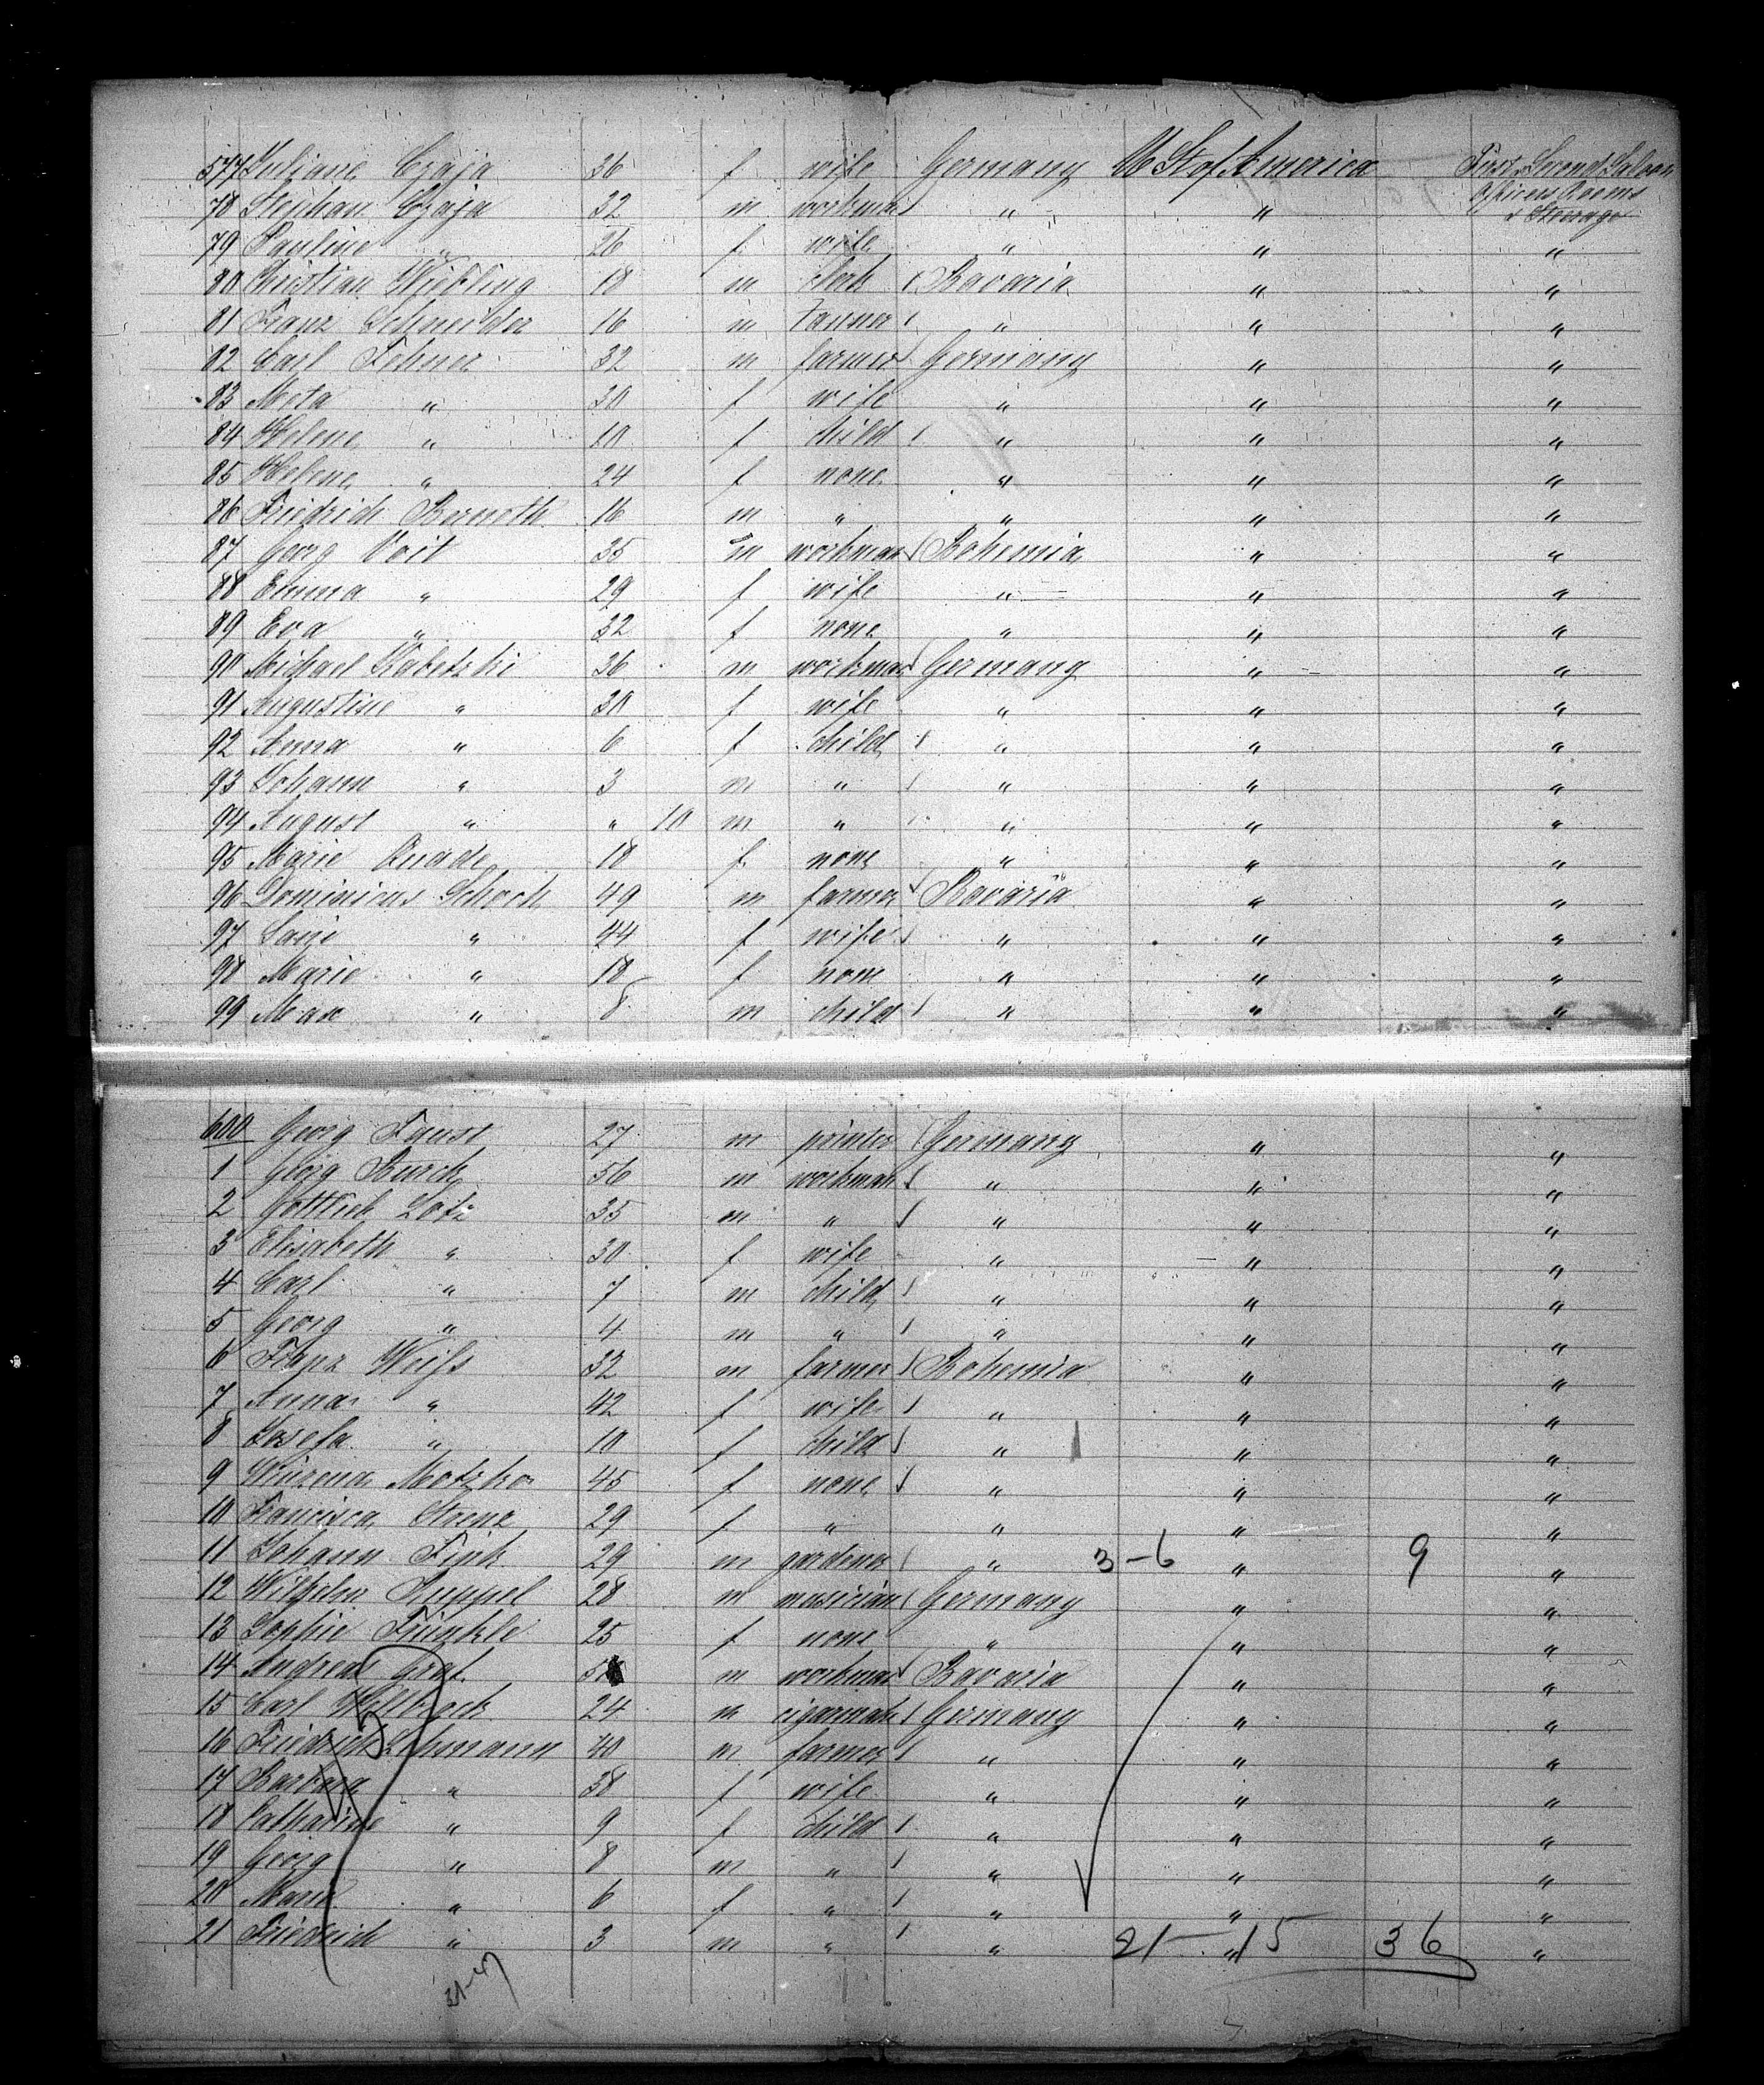 577 Juliane Czaja 36 f wife Germany U St of America First, Second Saloon
Officers Rooms
& Steerage
78 Stephan Czaja 32 m workman " "
79 Pauline " 26 f wife " " "
80 Christian Wiebling 18 m clerk Bavaria " "
81 Franz Schneider 16 m tanner " " "
82 Carl Fehner 32 m farmer Germany " "
83 Meta " 30 f wife " " "
84 Helene " 10 f child " " "
85 Helene " 24 f none " " "
86 Friedrich Bernoth 16 m " " " "
87 Georg Voit 35 m workman Bohemia " "
88 Emma " 29 f wife " " "
89 Eva " 32 f none " " "
90 Michael Kabetzki 36 m workman Germany " "
91 Augustine " 30 f wife " " "
92 Anna " 6 f child " " "
93 Johann " 3 m " " " "
94 August " " 10 m " " " "
95 Marie Quade 18 f none " " "
96 Dominicus Schoch 49 m farmer Bavaria " "
97 " 44 f wife " " "
98 Marie " 18 f none " " "
99 Max " 8 m child " " "
600 Georg Faust 27 m printer Germany " "
1 Georg Burck 56 m workman " " "
2 Gottlieb Lotz 35 m " " " "
3 Elisabeth " 30 f wife " " "
4 Carl " 7 m child " " "
5 Georg " 4 m " " " "
6 Franz Weifs 32 m farmer Bohemia " "
7 Anna " 42 f wife " " "
8 Josefa " 10 f child " " "
9 Motzko 45 f none " " "
10 Francisca 29 f " " " "
11 Johann Fink 29 m gardener " 3-6 " 9 "
12 Wilhelm Ruppel 28 m musician Germany " "
13 Sophie Trinkle 25 f none " " "
14 Andreas Graf m workman Bavaria " "
15 Carl 24 m cigarmak Germany " "
16 Friedrich Lehmann 40 m farmer " " "
17 Barbara " 38 f wife " " "
18 Catharine " 9 f child " " "
19 Georg " 8 m " " " "
20 Marie " 6 f " " " "
21 Friedrich " 3 m " " 21-15 " 36 "